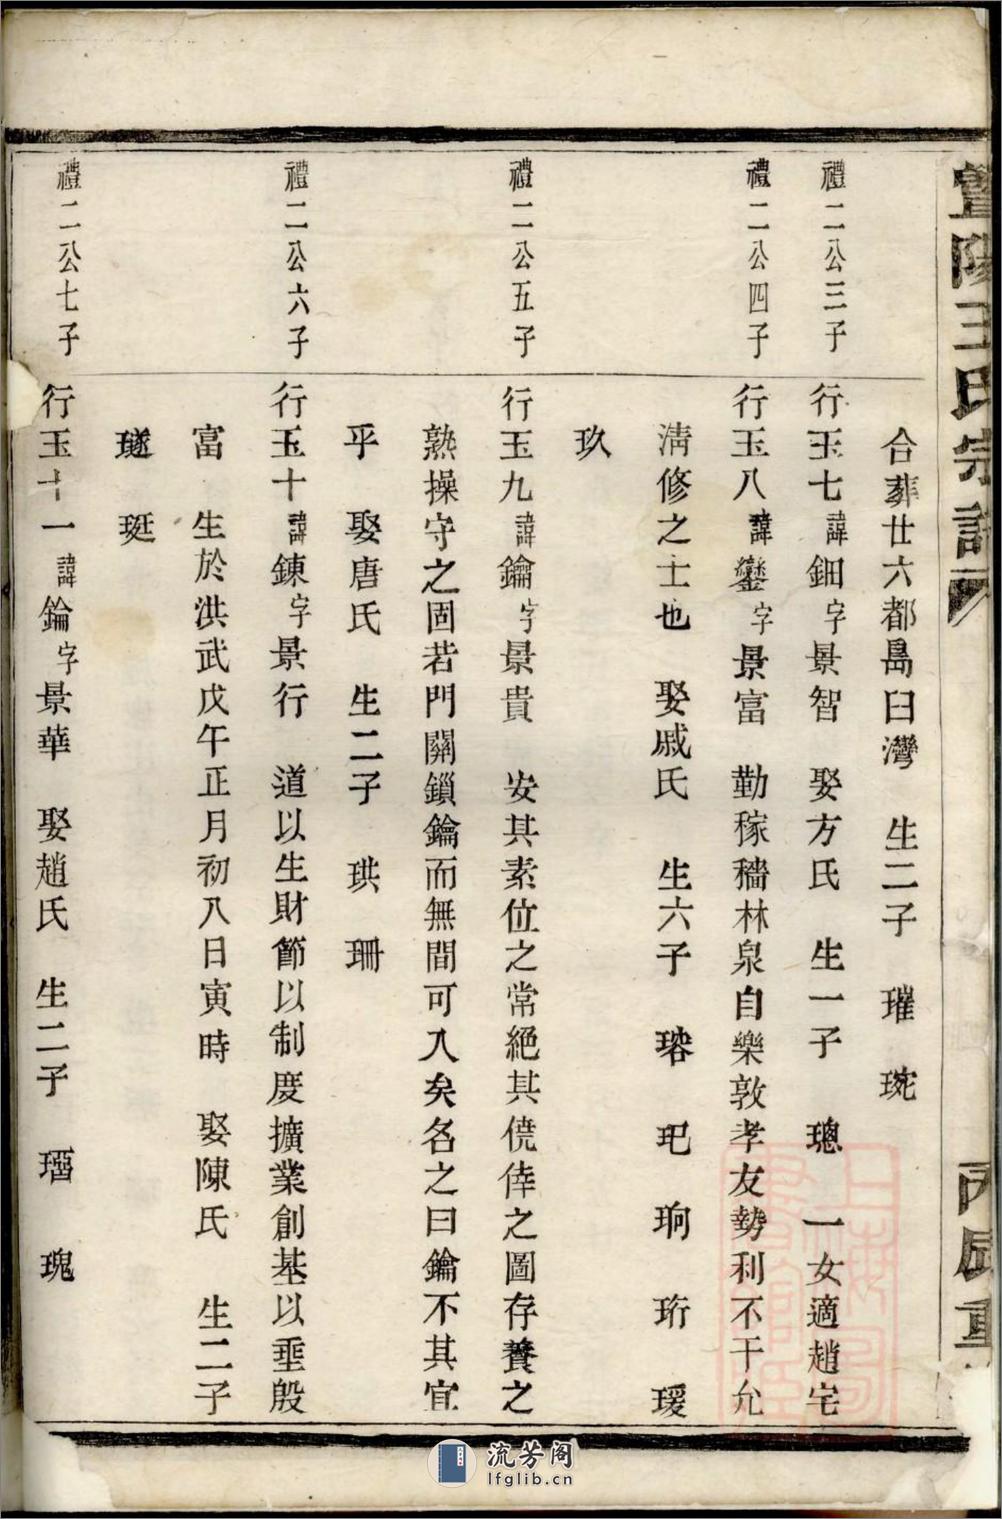 暨陽王氏宗譜
丙辰重
合葬廿六都島臼灣　生二子　璀　琬
禮二公三子
行玉七諱鈿字景智　娶方氏　生一子　璁　一女適趙宅
禮二公四子
行玉八諱鑾字景富　勤稼穡林泉自樂敦孝友勢利不干允
淸修之士也　娶戚氏　生六子　瑢　玘　珦　珩　瑗
玖
禮二公五子
行玉九諱鑰字景貴　安其素位之常絕其僥倖之圖存養之
熟操守之固若門關鎖鑰而無間可入矣名之曰鑰不其宜
乎　娶唐氏　生二子　珙　珊
禮二公六子
行玉十諱鍊字景行　道以生財節以制度擴業創基以垂殷
富　生於洪武戊午正月初八日寅時　娶陳氏　生二子
璲　珽
禮二公七子
行玉十一諱錀字景華　娶趙氏　生二子　瑨　瑰
流芳阁
lfglib.cn